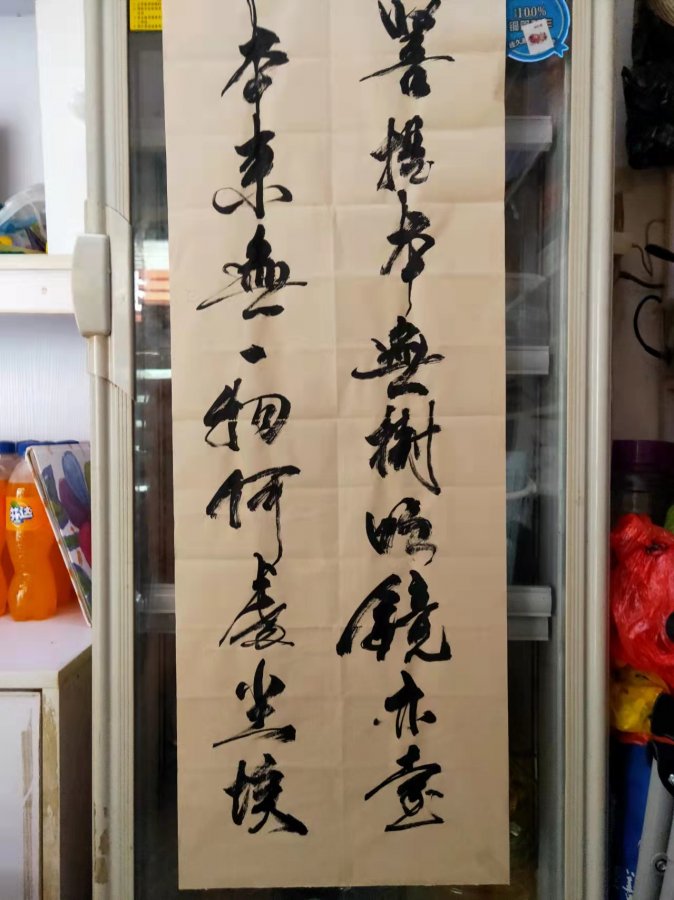 菩提本無樹明鏡亦臺
本来無一物何處尘埃
100%
芬达